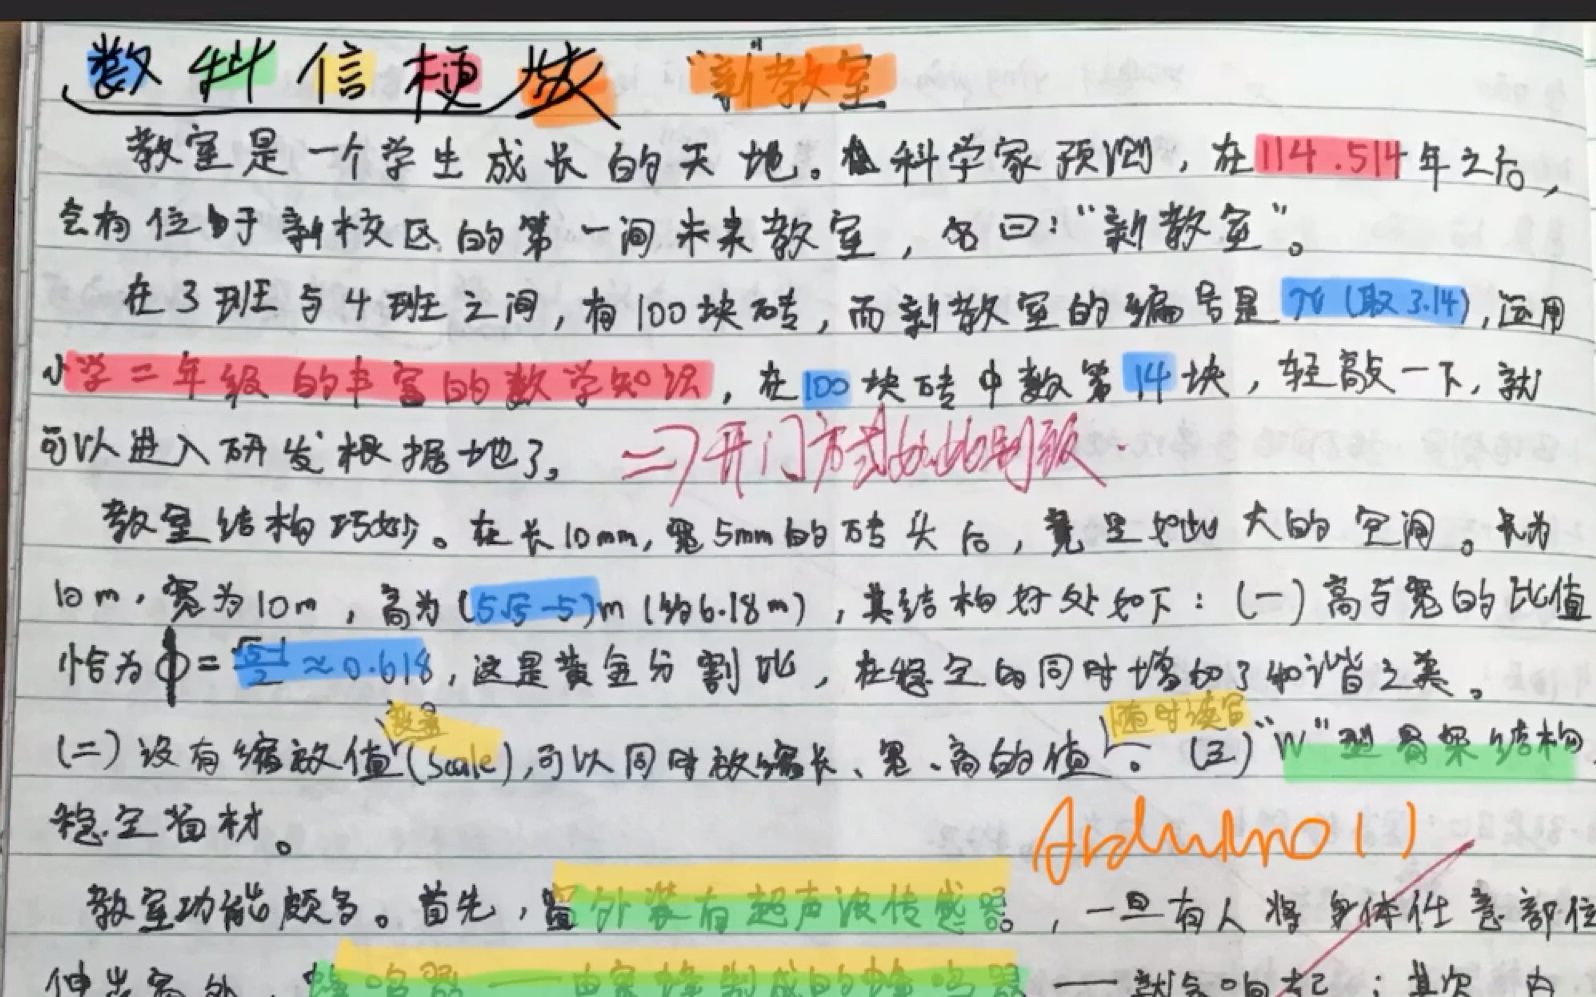 数科信梗类 "新教室"
教室是一个学生成长的天地。科学家预测，在114.514年之后，
会有位于新校区的第一间未来教室，名曰："新教室"。
在3班与4班之间，有100块砖，而新教室的编号是π(取3.14)，运用
小学二年级的丰富的数学知识，在100块砖中数第14块，轻敲一下，就
可以进入研发根据地了。 =>开门方式如此制
教室结构巧妙。在长10mm，宽5mm的砖头后，竟是如此大的空间。长为
10m，宽为10m，高为(5√5-5)m(约6.18m)，其结构好处如下：(一)高与宽的比值
恰为ϕ=(√5-1)/2≈0.618，这是黄金分割比，在稳定的同时增加了和谐之美。
(二)设有缩放值(Scale)，可以同时放缩长、宽、高的值。(三)"W"型骨架结构，
设置
随时读写
稳定省材。
Arduino()
教室功能颇多。首先，窗外装有超声波传感器，一旦有人将身体任意部位
伸出窗外，蜂鸣器——由蜜蜂制成的蜂鸣器——就会响起；其次，内